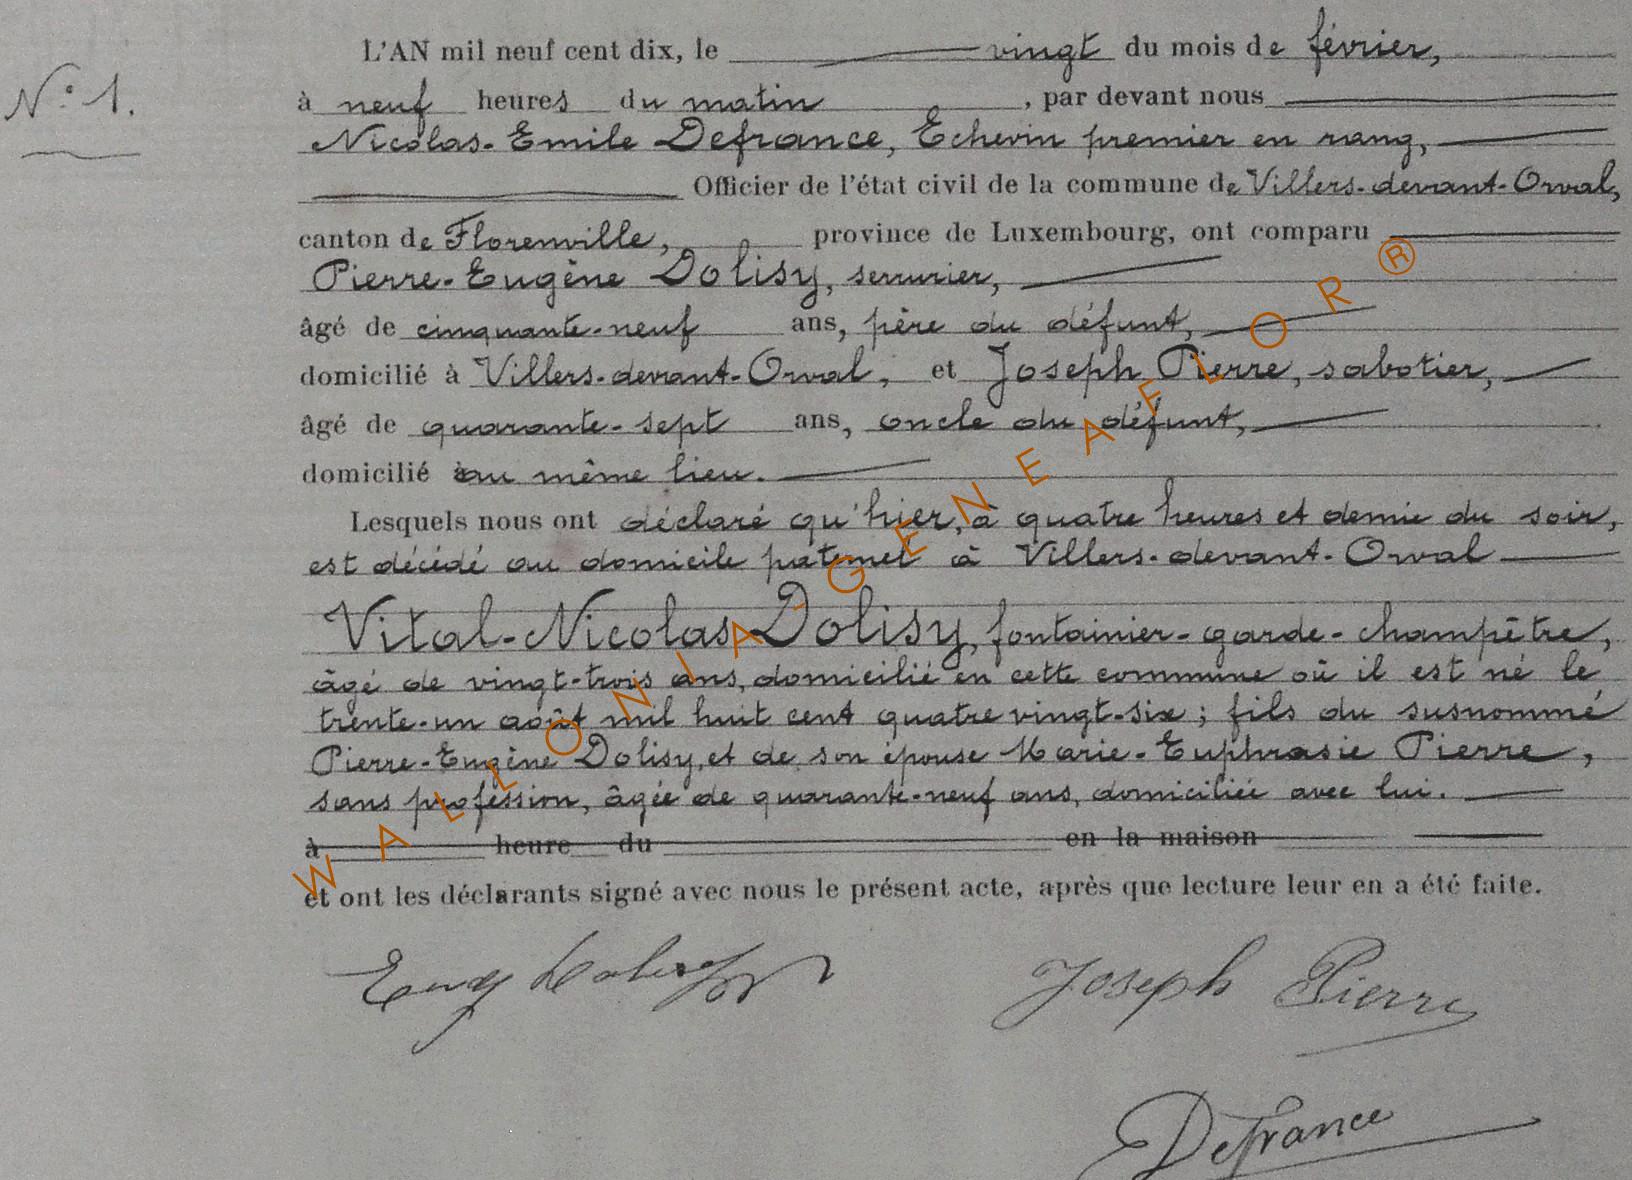 N° 1.
L'AN mil neuf cent dix, le vingt du mois de février,
à neuf heures du matin, par devant nous
Nicolas-Emile Defrance, Echevin premier en rang,
Officier de l'état civil de la commune de Villers-devant-Orval,
canton de Florenville, province de Luxembourg, ont comparu
Pierre-Eugène Dolisy, serrurier,
âgé de cinquante-neuf ans, père du défunt,
domicilié à Villers-devant-Orval, et Joseph Pierre, sabotier,
âgé de quarante-sept ans, oncle du défunt,
domicilié au même lieu.
Lesquels nous ont déclaré qu'hier, à quatre heures et demie du soir,
est décédé au domicile paternel à Villers-devant-Orval
Vital-Nicolas Dolisy, fontainier-garde-champêtre,
âgé de vingt-trois ans, domicilié en cette commune où il est né le
trente-un août mil huit cent quatre vingt-six ; fils du susnommé
Pierre-Eugène Dolisy, et de son épouse Marie-Euphrasie Pierre,
sans profession, âgée de quarante-neuf ans, domiciliée avec lui.
à heure du en la maison
et ont les déclarants signé avec nous le présent acte, après que lecture leur en a été faite.
Eug Dolisy
Joseph Pierre
Defrance
WALLONIA-GENEAFLOR®